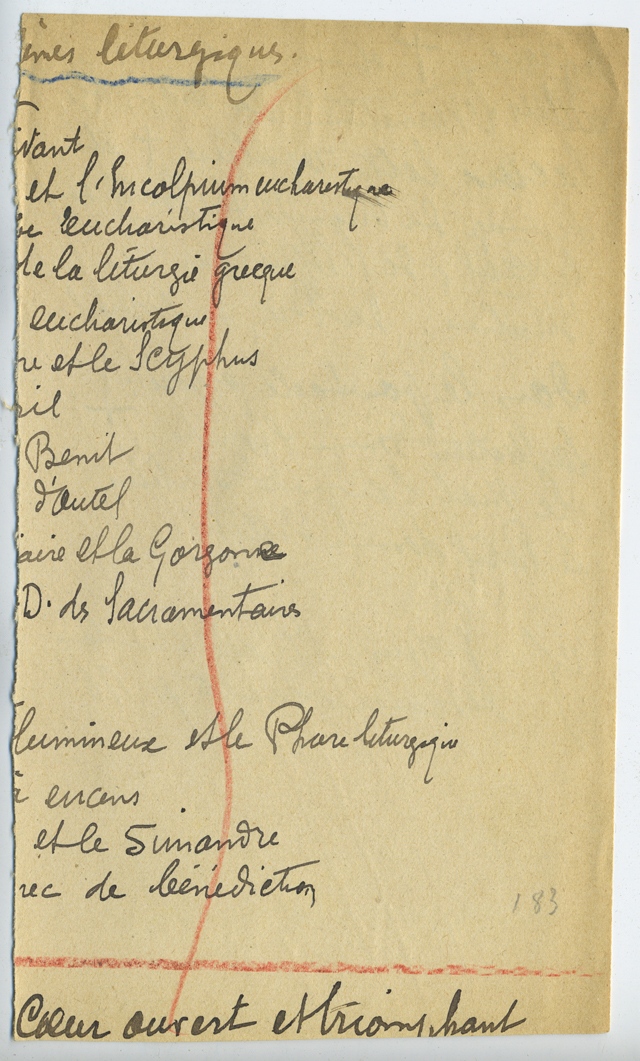 èmes liturgiques.
ivant
et l'Encolpium eucharistique
eucharistique
de la liturgie grecque
eucharistique
re et le Scyphus
sil
Benit
d'Autel
aire et la Gorgone
D. des Sacramentaires
lumineux et le Phare liturgique
à encens
et le Simandre
rec de bénédiction
183
Cœur ouvert et triomphant